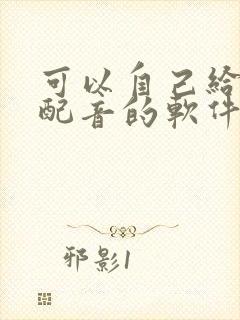 可以自己给
配音的軟件
邪影1